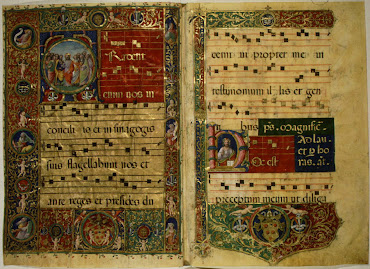 enim nos in
conciliis et in sinagogis
suis flagellabunt vos et
ante reges et presides du
cemini propter me in
testimonium illis et gen
bus ps. Magnific
Ad lau
et p ho
ras. añ
Hoc est
preceptum meum ut diliga